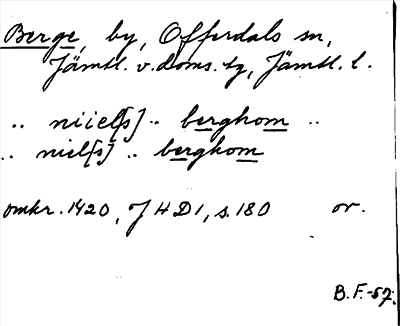 Berge, by, Offerdals sn,
Jämtl. v. doms. tg, Jämtl. l.
.. niiel[s] .. berghom ..
.. niel[s] .. berghom
omkr. 1420, JHD1, s. 180 or.
B.F.-57.